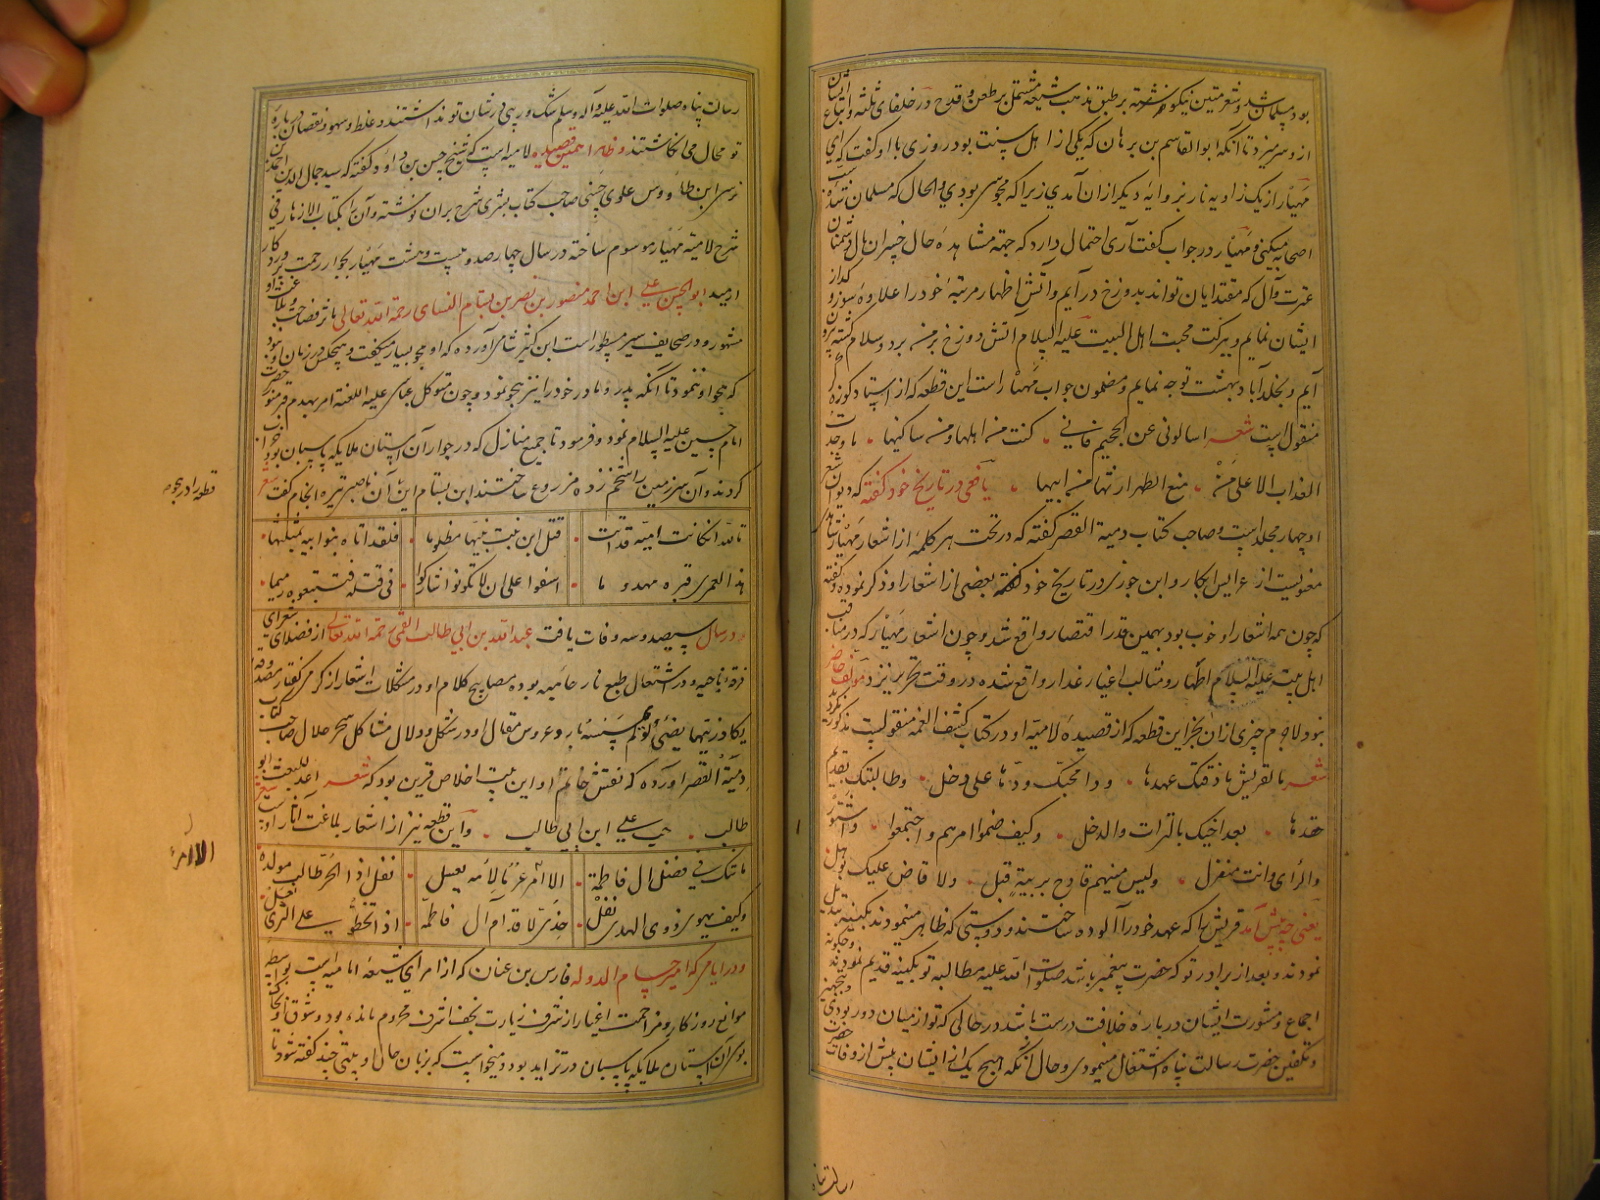 بود مسلمان شد و شعر متین نیکو میگفته بر طبق مذهب شیعه مشتمل بر طعن و قدح در خلفای ثلثه و اتباع ایشان
از و سر میزد تا آنکه ابو القاسم بن برهان که یکی از اهل سنت بود روزی با او گفت که ای
مهیار از یک زاویه نار بزاویه دیگر ازان آمدی زیرا که مجوسی بودی و الحال که مسلمان شده سب
اصحابه میکنی و مهیار در جواب گفت آری احتمال دارد که جهته مشاهده حال خسران مآل دشمنان
عترت و آل که مقتدایان تواند بدوزخ در آیم و آتش اظهار مرتبه خود را علاوه سوز و گداز
ایشان نمایم و ببرکت محبت اهل البیت علیه السلام آتش دوزخ بر من برد و سلام گشته برون
آیم و بخلد آباد بهشت توجه نمایم و مضمون جواب مهیار است این قطعه که از استاد کوزه گر
منقول است شعر اسالونی عن الجحیم فانی کنت من اهلها و من ساکنیها ما وجدت
العذاب الا علی من منع الطهر ارثها من ابیها یافعی در تاریخ خود گفته که دیوان شعر
او چهار مجلد است و صاحب کتاب دمیة القصر گفته که در تحت هر کلمه از اشعار مهیار شاهد
معنویست از عرایس ابکار و ابن جوزی در تاریخ خود گفته بعضی از اشعار او ذکر نموده و گفته
که چون همه اشعار او خوب بود بهمین قدر اقتصار واقع شد و چون اشعار مهیار که در مناقب
اهل بیت علیه السلام اطهار و مثالب اغیار غدار واقع شده در وقت تحریر نیز نزد مؤلف حاضر
نبود لاجرم چیزی ازان بجز این قطعه که از قصیده لامیه او در کتاب کشف الغمه منقولست مذکور نگردید
شعر ما لقریش ماذقتک عهدها و دامجتک ودّها علی دخل و طالبتک بقدیم
حقدها بعد اخیک بالترات و الدخل و کیف ضموا امرهم و اجتمعوا و استوزر
والرأی و انت منعزل و لیس منهم قادح بریبة قبل و لا قاض علیک بوهل
یعنی چه پیش آمد قریش را که عهد خود را آلوده ساختند و دوستی که ظاهر مینمودند بکینه بدل
نمودند و بعد از برادر تو که حضرت پیغمبر باشد صلوات الله علیه مطالبه تو بکینه قدیم نمودند و چگونه
اجماع و مشورت ایشان در باره خلافت درست باشد در حالی که تو از میان دور بودی و بتجهیز
و تکفین حضرت رسالت پناه اشتغال مینمودی و حال آنکه هیچ یک از ایشان پیش از وفات حضرت
رسالت پناه
رسالت پناه صلوات الله علیه و آله و سلم شک و ریبی در شان تو نداشتند و غلط و سهو و نقصان در باره
تو محال می انگاشتند و ظاهرا همین قصیده لامیه است که شیخ حسن بن داود گفته که سید جمال الدین احمد بن
موسی ابن طاووس علوی حسنی صاحب کتاب بشری شرح بران نوشته و آن را بکتاب الازهار فی
شرح لامیه مهیار موسوم ساخته در سال چهارصد و بیست و هشت مهیار بجوار رحمت پروردگار
رسید ابو الحسن علی ابن احمد منصور بن نصر بن بسام النسای رحمة الله تعالی مآثر فصاحت و بلاغت او
مشهور و در صحایف سیر مسطور است ابن کثیر شامی آورده که او هجو بسیار میگفت و هیچکس در زمان او نبود
که هجو او ننمود تا آنکه پدر و مادر خود را نیز هجو نمود و چون متوکل عباسی علیه اللعنه امر بهدم قبر منور حضرت
امام حسین علیه السلام نمود و فرمود تا جمیع منازل که در جوار آن آستان ملایکه پاسبان بود خراب
کردند و آن سرزمین را شخم زده مزروع ساختند ابن بسام این آن ناصبی تیره انجام گفت شعر
قطعه را در هجو
تالله ان کانت امیة قد اتت قتل ابن بنت نبیها مظلوما فلقد اتاه بنو ابیه بمثلها
هذا لعمری قبره مهدوما اسفوا علی ان لا تکونوا شارکوا فی قتله فتتبعوه رمیما
و در سال سیصد و سه وفات یافت عبدالله بن ابی طالب القمی رحمة الله تعالی از فضلای شعرای
فرقه ناجیه و در اشتعال طبع نار حامیه بوده مصابیح کلام او در مشکلات اشعار از گرمی گفتار مصدوقه
یکاد زیتها یضیء و لو لم تمسسه نار و عروس مقال او در شکل و دلال مشاکل سحر حلال صاحب کتاب
دمیة القصر آورده که نقش خاتم او این بیت اخلاص قرین بود که شعر اعد للبعث ابو
طالب حب علی ابن ابی طالب و این قطعه نیز از اشعار بلاغت آثار اوست شعر
ما شک فی فضل آل فاطمة الا امرء لامه یعسل نغل اذا الحر طالب مولده
الا امرء
وکیف یهوی ذوی الهدی نغل خدی لاقدام آل فاطمة اذا تخطوا علی الثری نعل
و در ایامی که امیر حسام الدوله فارس بن عنان که از امرای شیعه امامیه است بواسطه
موانع روزگار و مزاحمت اغیار از شرف زیارت نجف اشرف محروم مانده بود و شوق او بخاک
بوسی آن آستان ملایکه پاسبان در تزاید بود و میخواست که بزبان حال او بیتی چند گفته شود تا